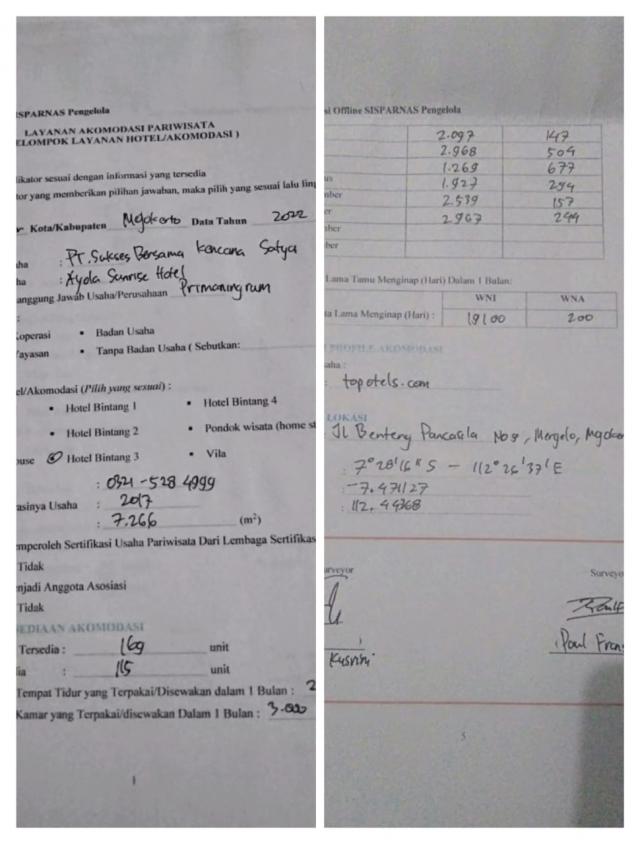 ISPARNAS Pengelola
LAYANAN AKOMODASI PARIWISATA
ELOMPOK LAYANAN HOTEL/AKOMODASI )
likator sesuai dengan informasi yang tersedia
tor yang memberikan pilihan jawaban, maka pilih yang sesuai lalu
Kota/Kabupaten Mojokerto Data Tahun 2022
ha : PT. Sukses Bersama Kencana Satya
ha : Ayola Sunrise Hotel
anggung Jawab Usaha/Perusahaan Primaningrum
:
Koperasi • Badan Usaha
Yayasan • Tanpa Badan Usaha ( Sebutkan:
el/Akomodasi (Pilih yang sesuai) :
• Hotel Bintang 1 • Hotel Bintang 4
• Hotel Bintang 2 • Pondok wisata (home st
ouse Hotel Bintang 3 • Vila
: 0321-528 4999
asinya Usaha : 2017
: 7.266 (m²)
emperoleh Sertifikasi Usaha Pariwisata Dari Lembaga Sertifikas
Tidak
enjadi Anggota Asosiasi
Tidak
EDIAAN AKOMODASI
Tersedia : 169 unit
ia : 115 unit
Tempat Tidur yang Terpakai/Disewakan dalam 1 Bulan : 2
Kamar yang Terpakai/disewakan Dalam 1 Bulan : 3.000
1
si Offline SISPARNAS Pengelola
2.097 147
2.968 504
1.269 677
us 1.927 294
mber 2.539 157
er 2.967 299
mber
ber
Lama Tamu Menginap (Hari) Dalam 1 Bulan:
WNI WNA
ta Lama Menginap (Hari) : 19100 200
PROFILE AKOMODASI
saha :
topotels.com
LOKASI
Jl Benteng Pancasila No 9, Mergelo,
: 7°28'16" S - 112°26'37" E
: -7.471127
: 112.44368
urveyor Surveyo
Kusrini Paul Fran
5